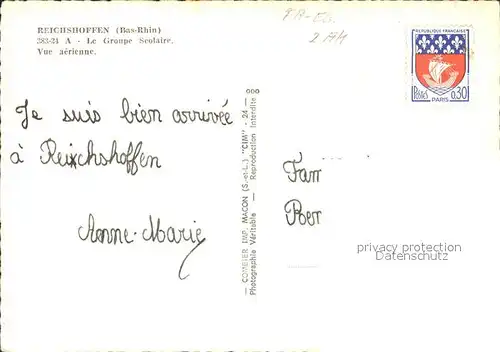 REICHSHOFFEN (Bas-Rhin)
283-24 A - Le Groupe Scolaire.
Vue aérienne.
RÉPUBLIQUE FRANÇAISE
Postes 0,30
PARIS
Je suis bien arrivée
à Reichshoffen
Anne-Marie
— COMBIER IMP. MACON (S.-et-L.) "CIM" - 24 —
Photographie Véritable — Reproduction Interdite
Fam
Ber
privacy protection
Datenschutz